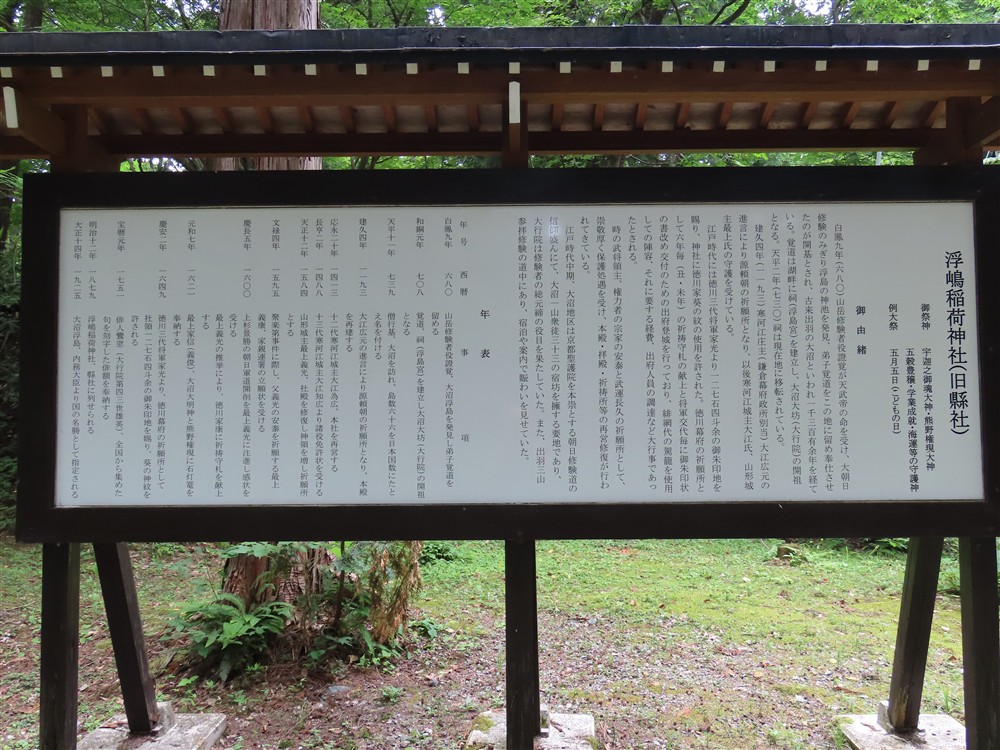 浮嶋稲荷神社(旧縣社)
御祭神　宇迦之御魂大神・熊野権現大神
五穀豊穣・学業成就・海運等の守護神
例大祭　五月五日(こどもの日)
御由緒
白鳳九年(六八〇)山岳修験者役證覚が天武帝の命を受け、大朝日
修験のみぎり浮島の神池を発見、弟子覚道をこの地に留め奉仕させ
たのが開基とされ、古来出羽の大沼といわれ一千三百有余年を経て
いる。覚道は湖畔に祠(浮島宮)を建立し、大沼大坊(大行院)の開祖
となる。天平二年(七三〇)祠は現在地に移転されている。
建久四年(一一九三)寒河江庄主(鎌倉幕府政所別当)大江広元の
進言により源頼朝の祈願所となり、以後寒河江城主大江氏、山形城
主最上氏の守護を受けている。
江戸時代には徳川三代将軍家光より一二七石四斗余の御朱印地を
賜り、神社に徳川家葵の紋の使用を許された。徳川幕府の祈願所と
して六年毎(丑・未年)の祈祷守札の献上と将軍交代毎に御朱印状
の書改め交付のための出府登城を行っており、緋網代の駕籠を使用
しての陣容、それに要する経費、出府人員の調達など大行事であっ
たとされる。
時の武将領主・権力者の宗家の安泰と武運長久の祈願所として、
崇敬厚く保護処遇を受け、本殿・拝殿・祈祷所等の再営修復が行わ
れてきている。
江戸時代中期、大沼地区は京都聖護院を本崇とする朝日修験道の
信仰盛んにて、大沼一山衆徒三十三の宿坊を擁する要地であり、
大行院は修験者の総元締の役目を果たしていた。また、出羽三山
参拝修験の道中にあり、宿泊や案内で賑わいを見せていた。
年表
年号　西暦　事項
白鳳九年　六八〇　山岳修験者役證覚、大沼浮島を発見し弟子覚道を
留める
和銅元年　七〇八　覚道、祠(浮島宮)を建立し大沼大坊(大行院)の開祖
となる
天平十一年　七三九　僧行基、大沼を訪れ、島数六十六を日本国数にたと
え名を付ける
建久四年　一一九三　大江広元の進言により源頼朝の祈願所となり、本殿
を再建する
応永二十年　一四一三　十二代寒河江城主大江為広、本社を再営する
長亨二年　一四八八　十三代寒河江城主大江知広より諸役免許状を受ける
天正十二年　一五八四　山形城主最上義光、社殿を修復し神領を増し祈願所
とする
文禄四年　一五九五　聚楽第事件に際し、父義光の安泰を祈願する最上
義康、家親連署の立願状を受ける
慶長五年　一六〇〇　上杉景勝の朝日軍道開削を最上義光に注進し感状を
受ける
最上義光の推挙により、徳川家康に祈祷守札を献上
する
元和七年　一六二一　最上家信(義俊)、大沼大明神と熊野権現に石灯篭を
奉納する
慶安二年　一六四九　徳川三代将軍家光より、徳川幕府の祈願所として
社領一二七石四斗余の御朱印地を賜り、葵の神紋を
許される
宝暦元年　一七五一　俳人鷺窓(大行院第四三世雄英)、全国から集めた
句を刻字した俳額を奉納する
明治十二年　一八七九　浮嶋稲荷神社、縣社に列せられる
大正十四年　一九二五　大沼浮島、内務大臣より国の名勝として指定される